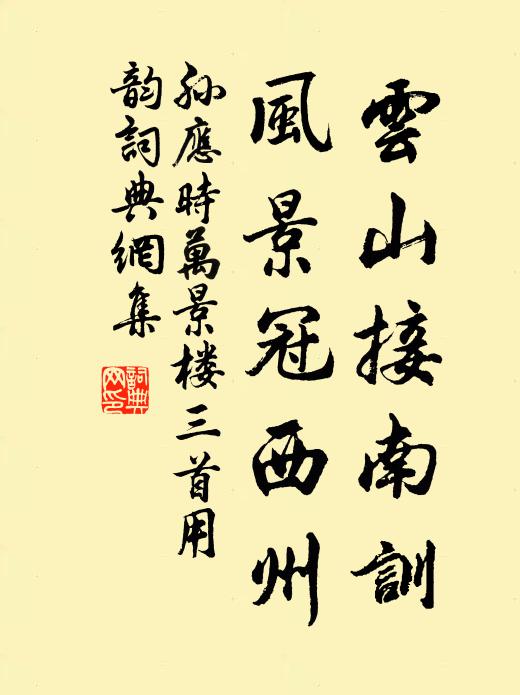 雲山接南訓
風景冠西州
孫應時萬景楼三首用
韵詞典網集
詞典网印